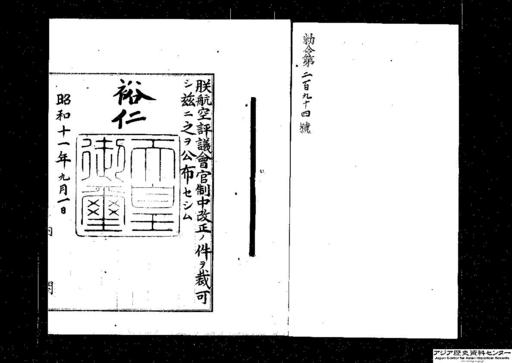 勅令第二百九十四號
朕航空評議會官制中改正ノ件ヲ裁可
シ玆ニ之ヲ公布セシム
裕仁
天皇御璽
昭和十一年九月一日
内閣
アジア歴史資料センター
Japan Center for Asian Historical Records